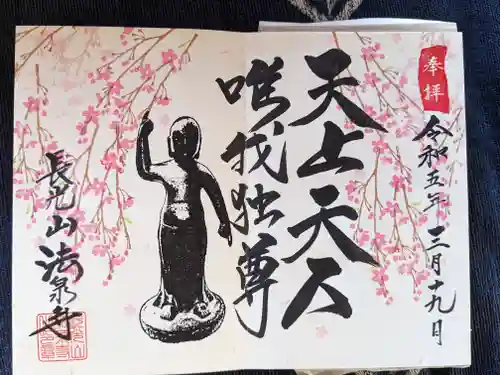 奉拝
令和五年三月十九日
天上天下
唯我独尊
長光山法泉寺